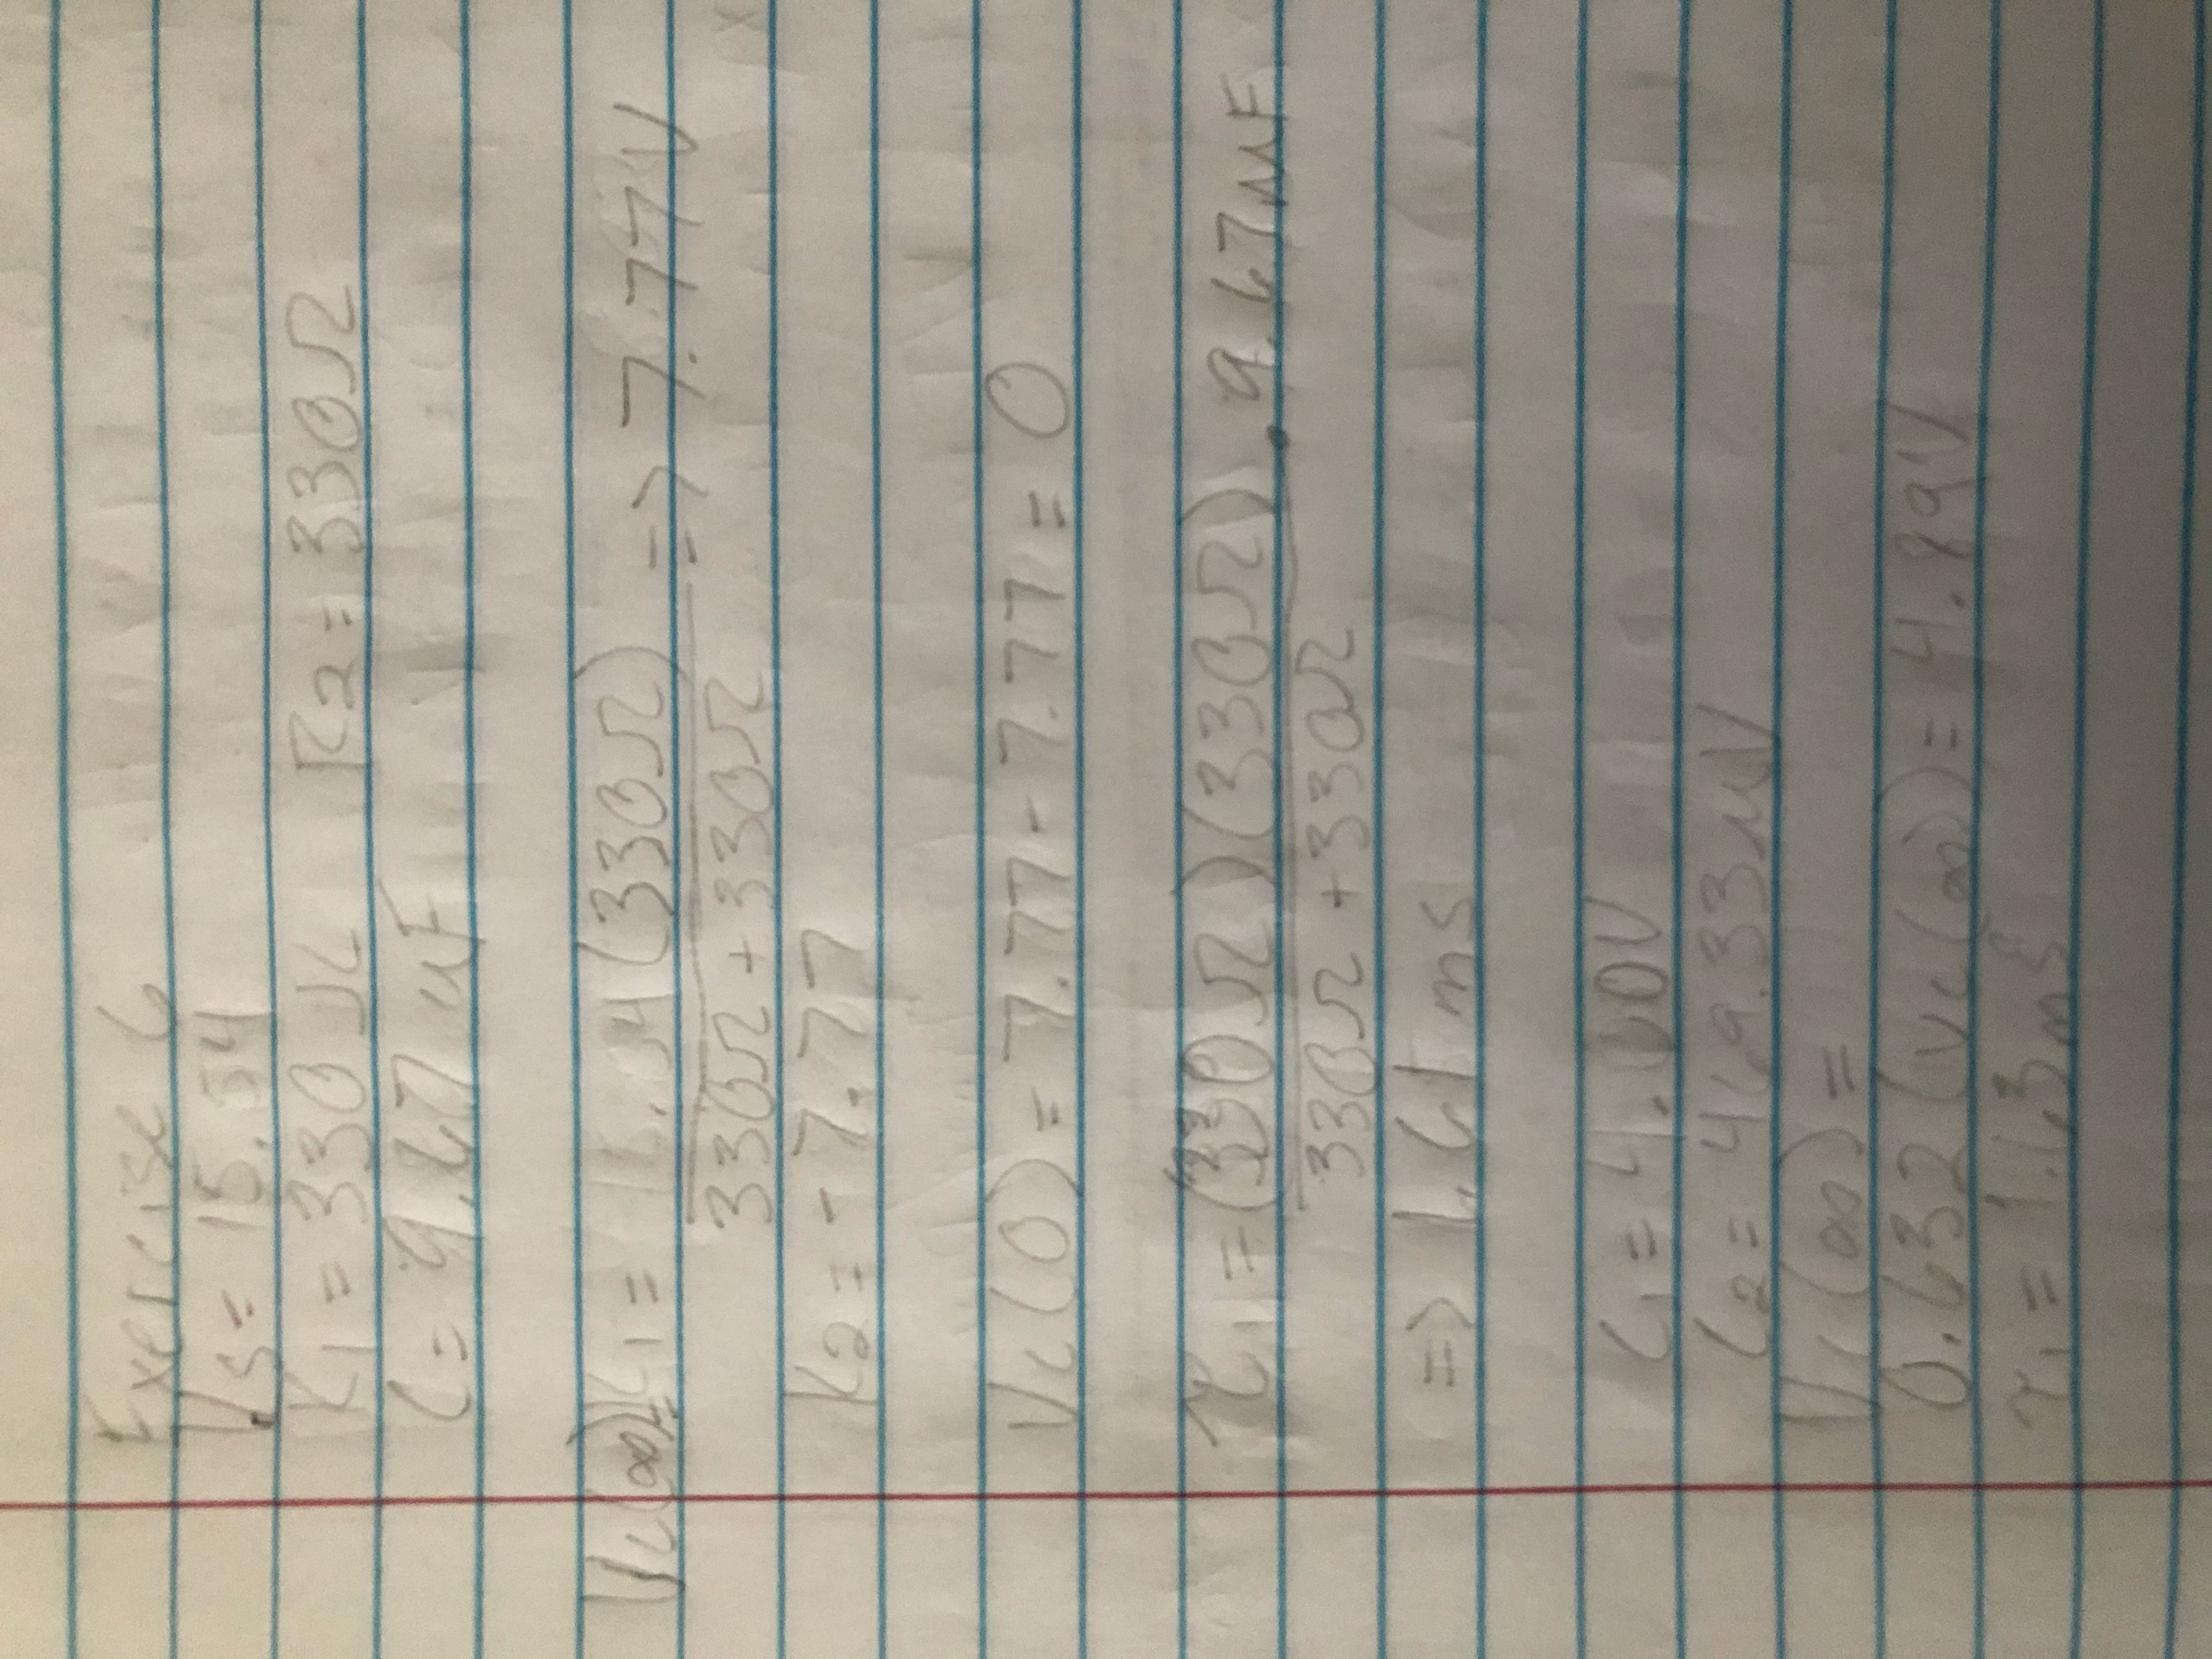 Exercise 6
Vs = 15.54
R1 = 330Ω R2 = 330Ω
C = 9.67 uF
Vc(∞) = K1 = 15.54 (330Ω) => 7.77V
330Ω + 330Ω
K2 = -7.77
Vc(0) = 7.77 - 7.77 = 0
τ1 = (330Ω)(330Ω) . 9.67uF
330Ω + 330Ω
=> 1.6 ms
C1 = 4.00V
C2 = 469.33 uV
Vc(∞) =
0.632(Vc(∞)) = 4.89V
τ1 = 1.63ms